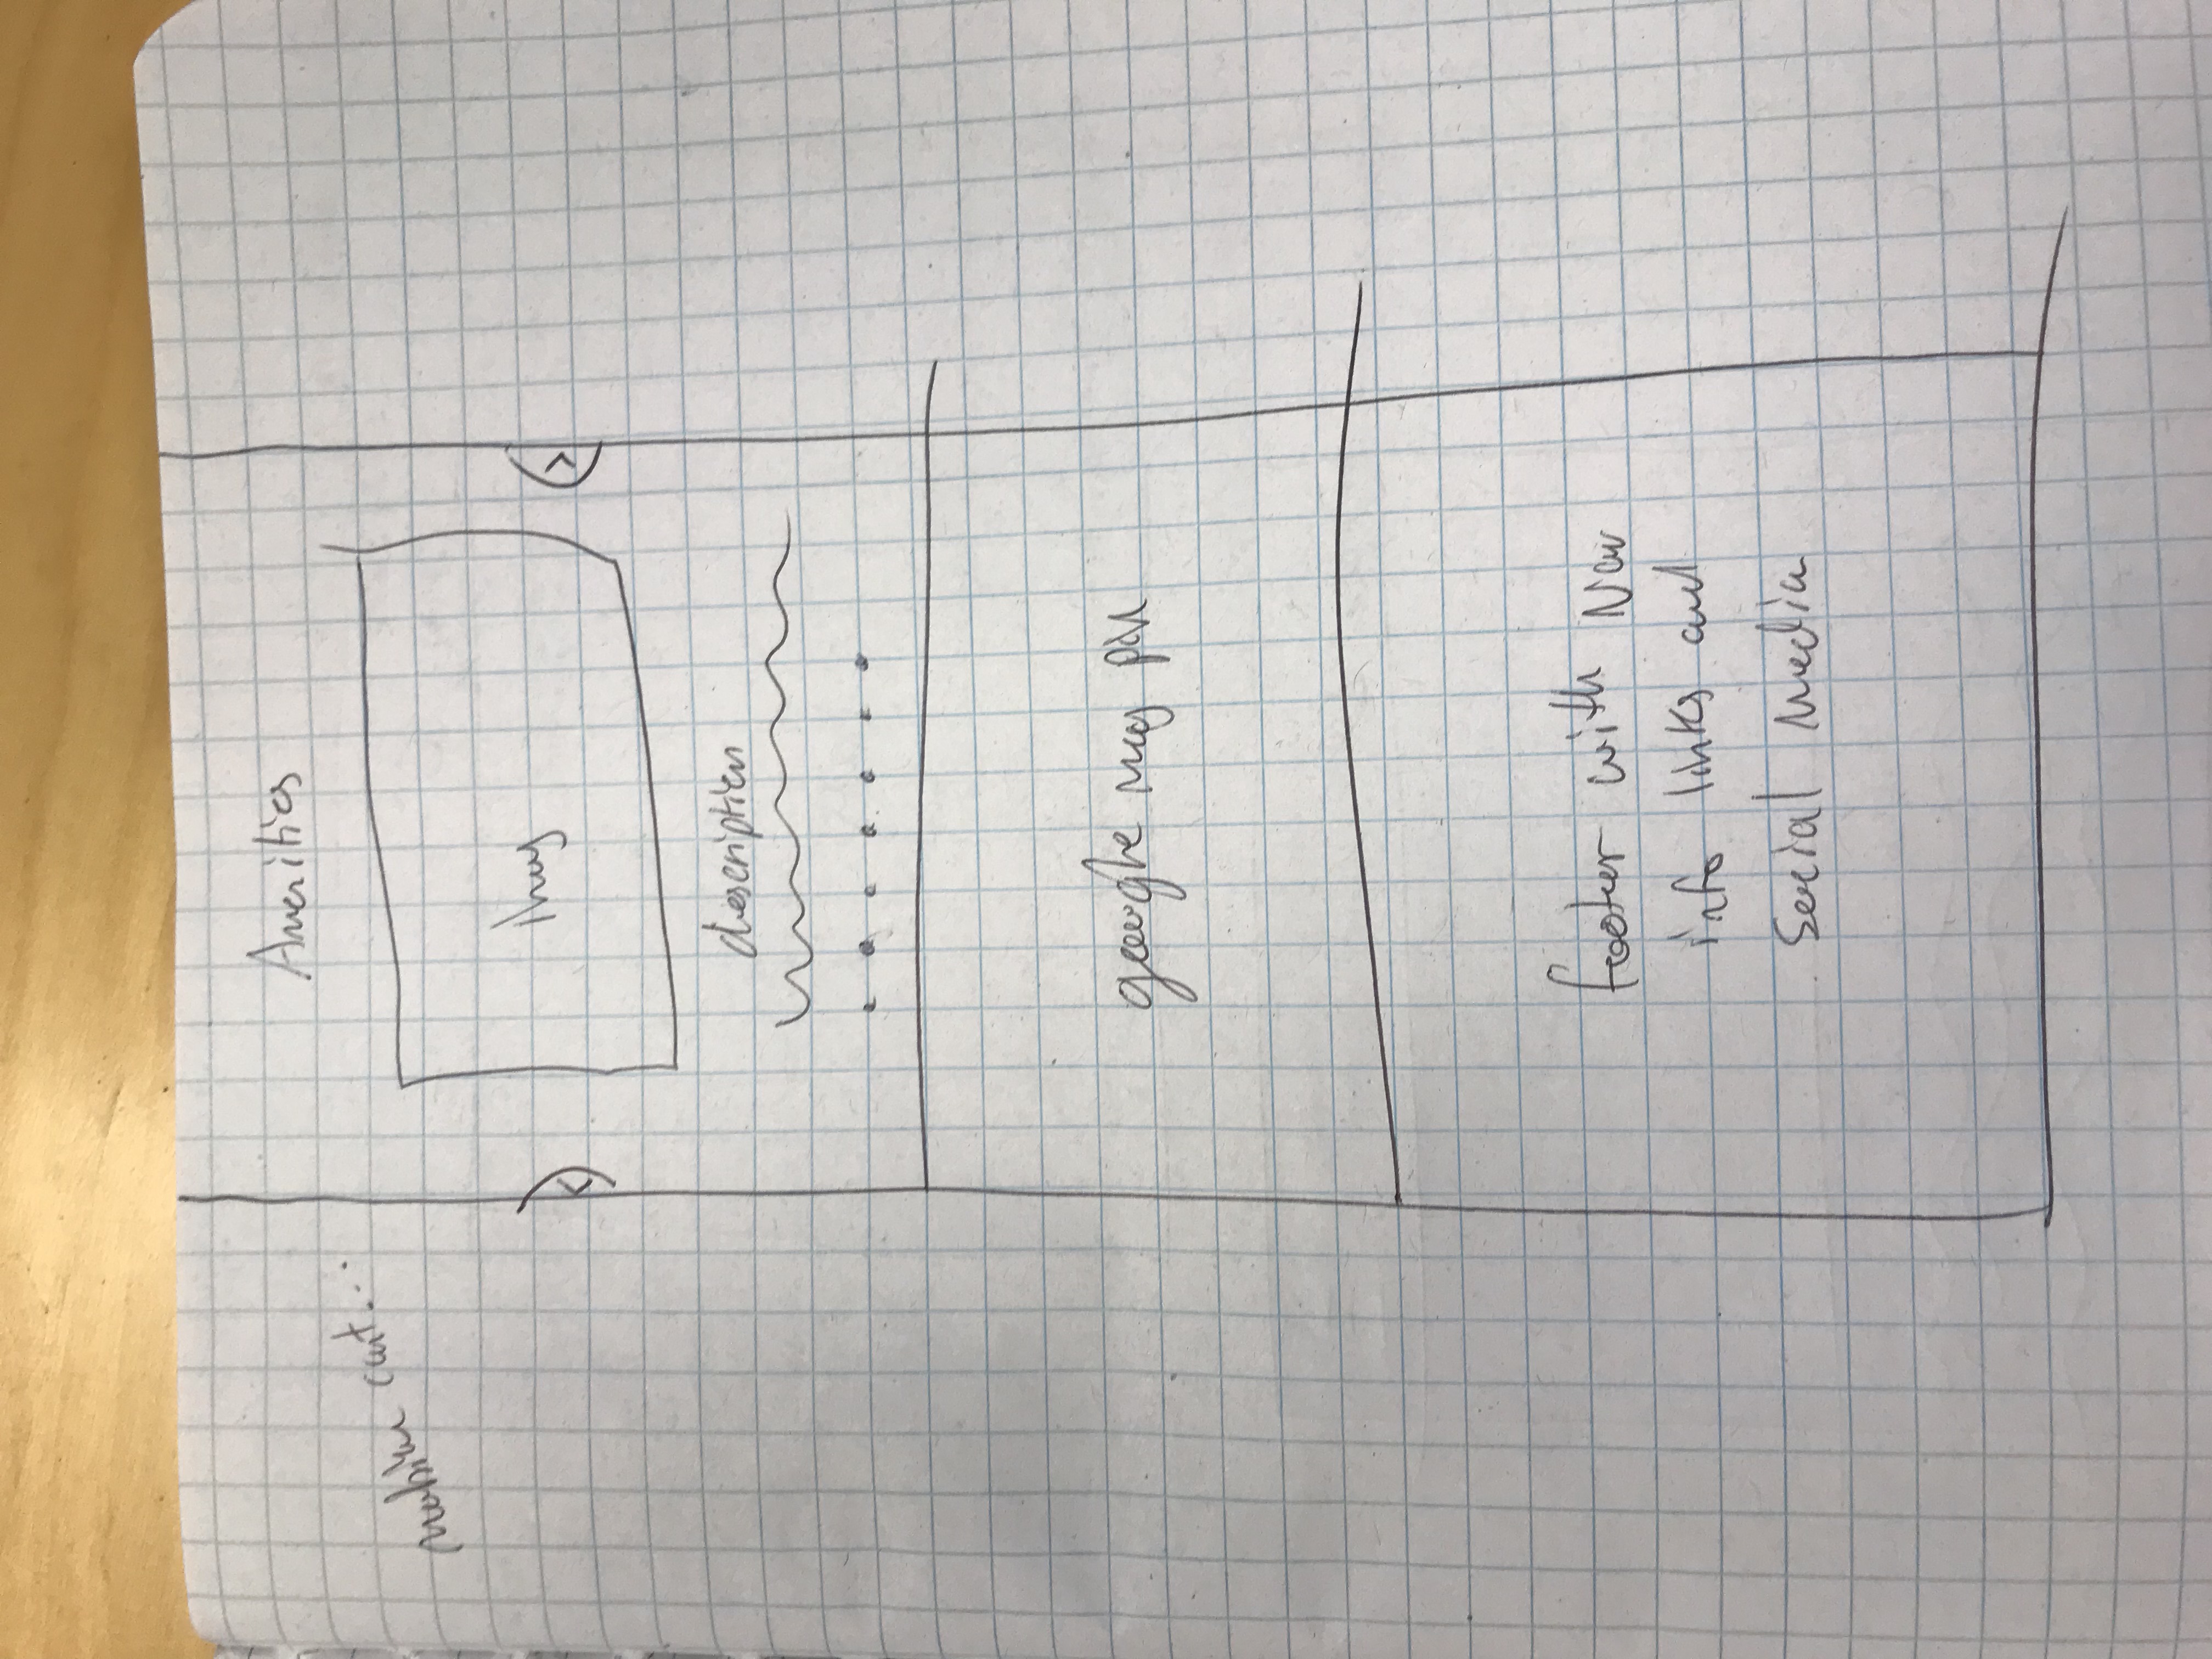 Amenities
cont...
Img
<
>
description
google map pin
footer with Nav
info links and
Social media